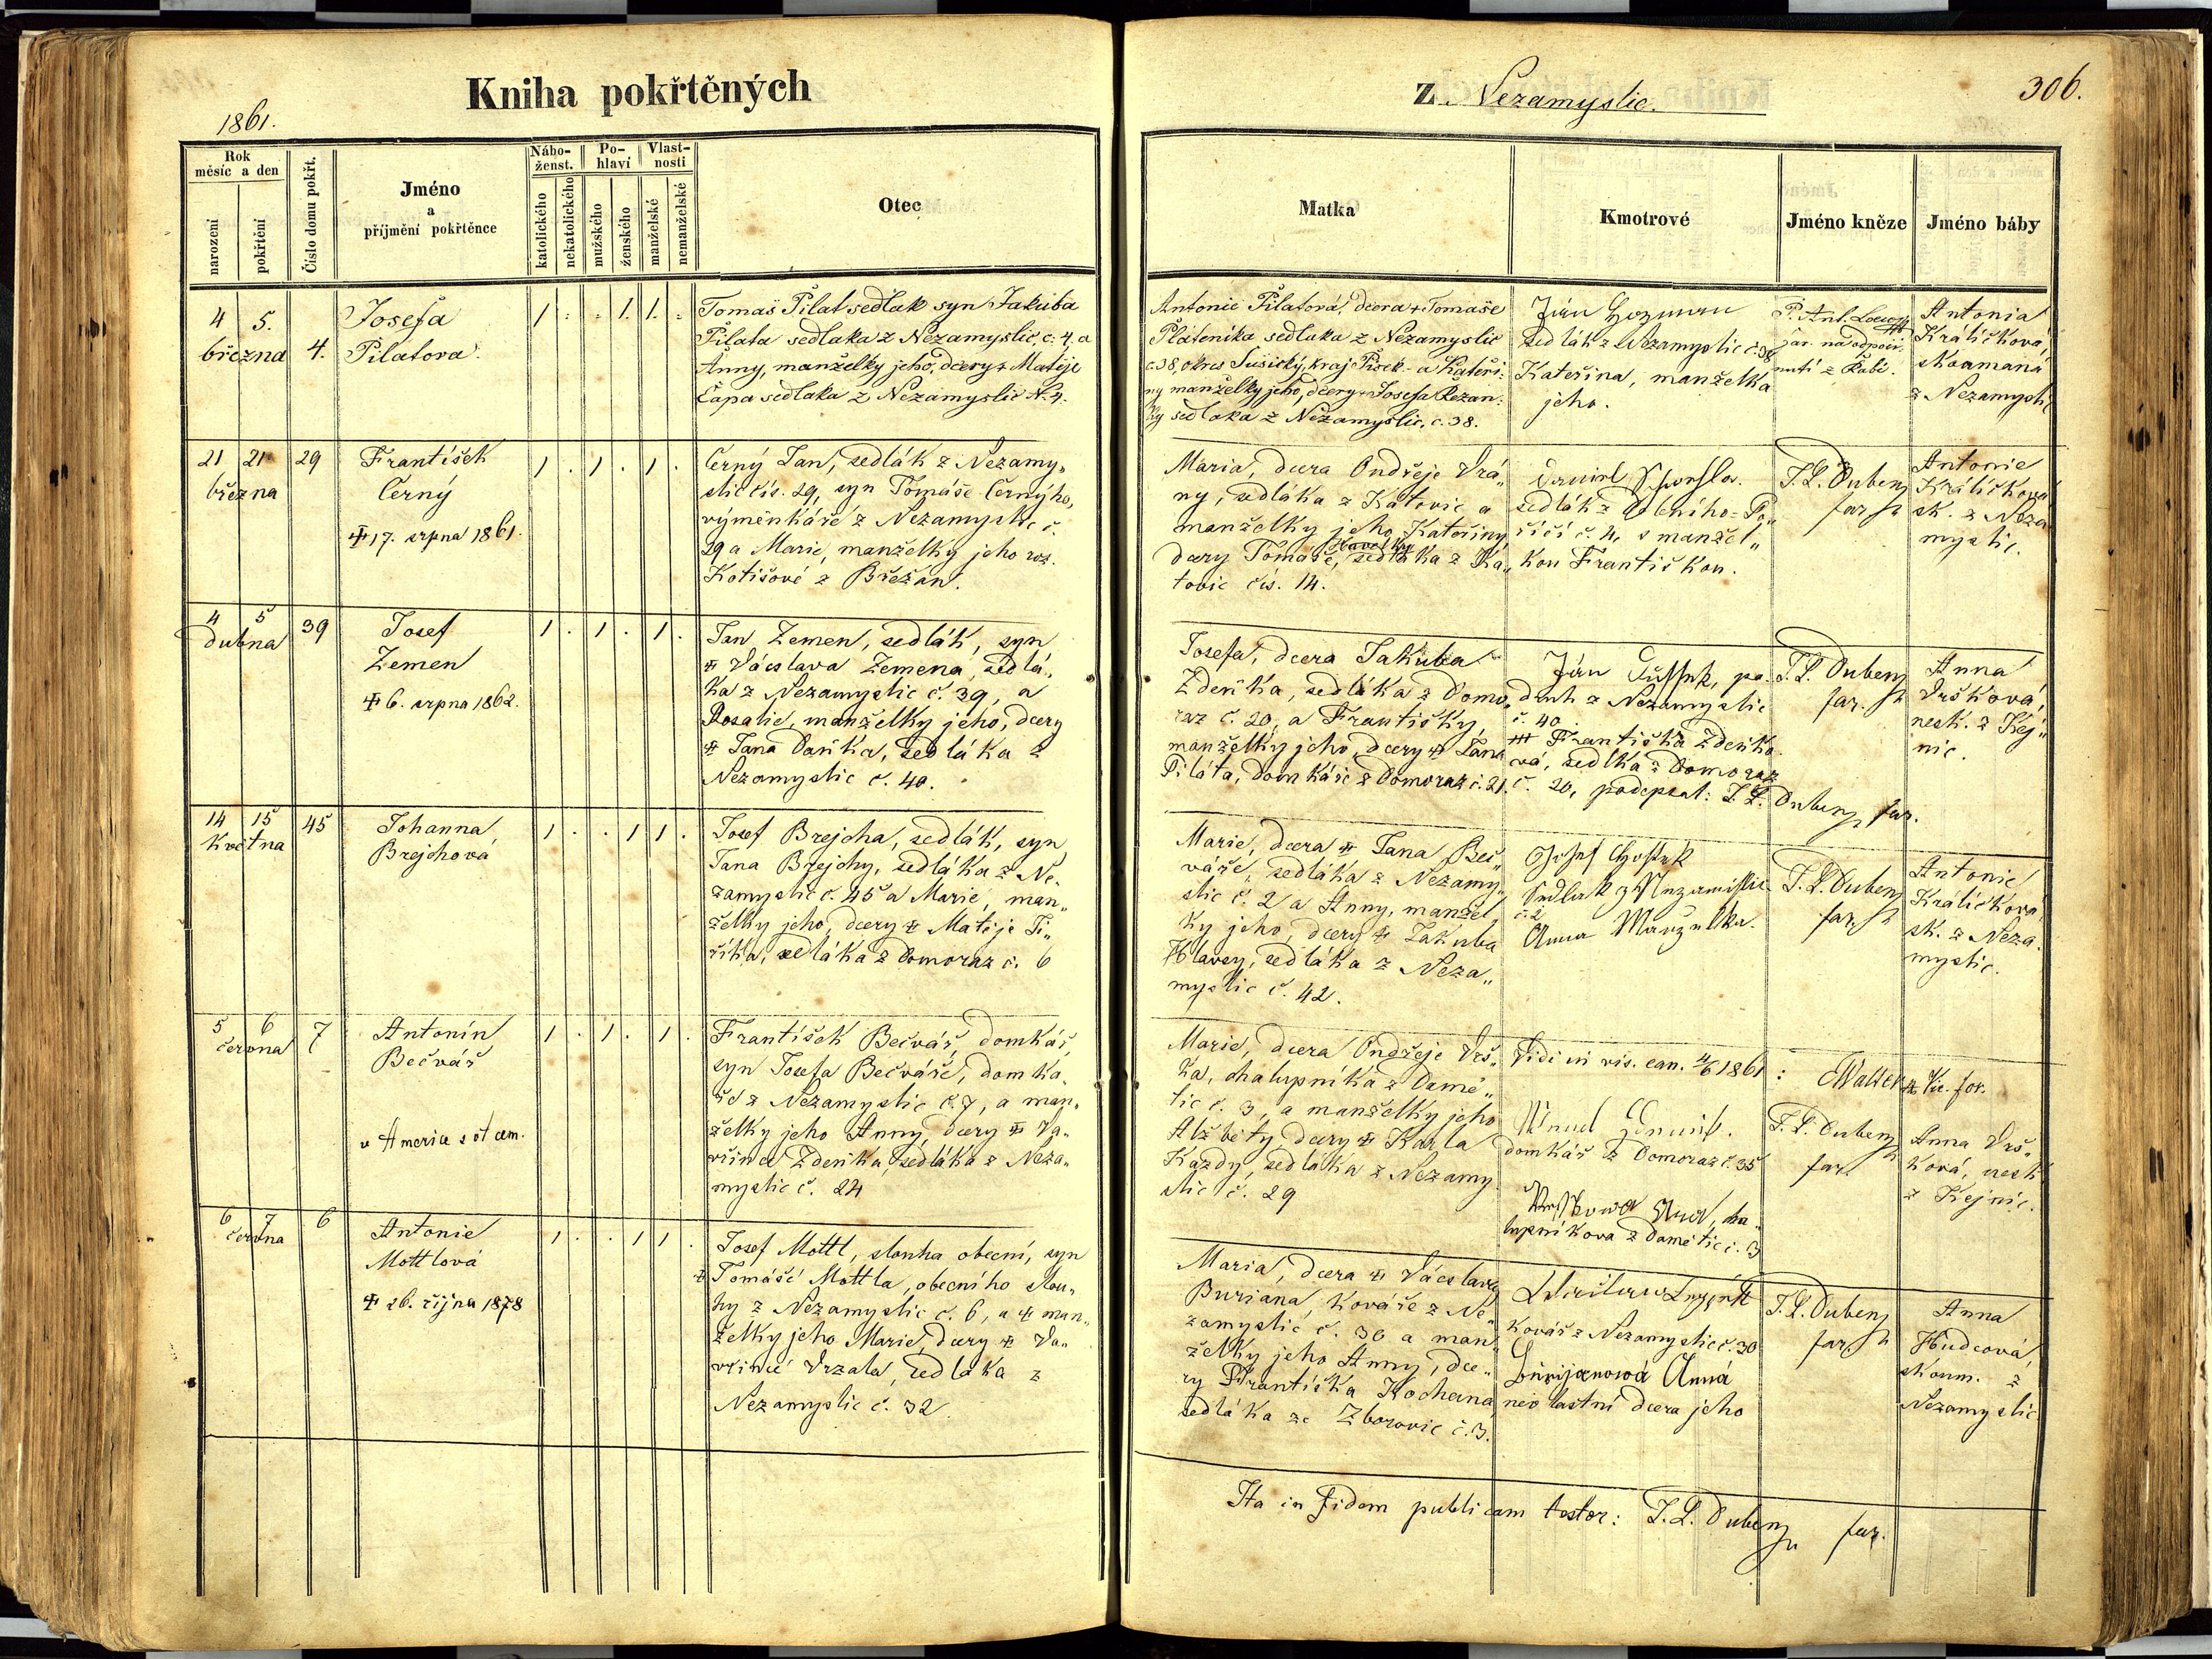 Kniha pokřtěných
z Nezamyslic.
306.
1861.
Rok
měsíc a den
narození
pokřtění
Číslo domu pokřt.
Jméno
a
příjmění pokřtěnce
Nábo-
ženst.
katolického
nekatolického
Po-
hlaví
mužského
ženského
Vlast-
nosti
manželské
nemanželské
Otec
Matka
Kmotrové
Jméno kněze
Jméno báby
4 5.
března 4.
Josefa
Pilatova.
1 . . 1. 1. .
Tomaš Pilat sedlak syn Jakuba
Pilata sedlaka z Nezamyslic, č. 4, a
Anny, manželky jeho, dcery + Matěje
Čapa sedlaka z Nezamyslic N. 4.
Antonie Pilatová, dcera + Tomaše
Platenika sedlaka z Nezamyslic
č. 38, okres Sušický, kraj Pisek - a Kateři-
ny manželky jeho, dcery + Josefa Řežan-
ky sedlaka z Nezamyslic, č. 38.
sedlák z Nezamyslic č. 38
Kateřina, manželka
jeho.
P. Ant. Loewy
far. na odpoči-
nutí z Rabí.
Antonia
Králíčková,
zkoumaná
z Nezamyslic
21 21 29
března
František
Černý
+ 17. srpna 1861.
1 . 1 . 1 .
Černý Jan, sedlák z Nezamy„
slic čís. 29, syn Tomáše Černýho,
výměnkáře z Nezamyslic č.
29 a Marie, manželky jeho roz.
Kotišové z Břežan.
Maria, dcera Ondřeje Vrá„
ny, sedláka z Katovic a
manželky jeho Kateřiny
dcery Tomáše, Havelky sedláka z Ka„
tovic čís. 14.
sedlák z Doleního-Po„
říčí č. 4, s manžel„
kou Františkou.
J. L. Dubenz
far.
Antonie
Králíčková
zk. z Neza
myslic.
4 5 39
dubna
Josef
Zemen
+ 6. srpna 1862.
1 . 1 . 1 .
Jan Zemen, sedlák, syn
+ Václava Zemena, sedlá„
ka z Nezamyslic č. 39, a
Rosalie, manželky jeho, dcery
+ Jana Daňka, sedláka z
Nezamyslic č. 40.
Josefa, dcera Jakuba
Zdeňka, sedláka z Domo„
raz č. 20, a Františky,
manželky jeho, dcery + Jana
Piláta, domkáře z Domoraz č. 21.
z Nezamyslic
č. 40
+++ Františka Zdeňko
vá, sedlka z Domoraz
č. 20, podepsal: J. L. Dubenz, far.
J. L. Dubenz
far.
Anna
Vršková,
nezk. z Kej„
nic.
14 15 45
května
Johanna
Brejchová
1 . . 1 1 .
Josef Brejcha, sedlák, syn
Jana Brejchy, sedláka z Ne„
zamyslic č. 45 a Marie, man„
želky jeho, dcery + Matěje Ji„
říka, sedláka z Domoraz č. 6
Marie, dcera + Jana Beč„
váře, sedláka z Nezamy„
slic č. 2 a Anny, manžel„
ky jeho, dcery + Jakuba
Hlavsy, sedláka z Neza„
myslic č. 42.
Sedlak z Nezamislic
č. 2
Anna Manzelka.
J. L. Dubenz
far.
Antonie
Králíčková
zk. z Neza„
myslic.
5 6 7
června
Antonín
Bečvář
v Americe s otcem.
1 . 1 . 1 .
František Bečvář, domkář,
syn Josefa Bečváře, domká„
ře z Nezamyslic č. 7, a man„
želky jeho Anny, dcery + Va„
vřince Zdeňka, sedláka z Neza„
myslic č. 24
Marie, dcera Ondřeje Vrš„
ka, chalupníka z Damě„
tic č. 3, a manželky jeho
Alžběty, dcery + Karla
Kazdy, sedláka z Nezamy
slic č. 29
Vidi in vis. can. 4/6 1861 : Walter Vic. for.
domkář z Domoraz č. 35
Wrsskowa Anna, cha„
lupníkova z Damětic č. 3
J. L. Dubenz
far.
Anna Vrš„
ková, nezk
z Kejnic.
6 7 6
června
Antonie
Mottlová
+ 26. října 1878
1 . . 1 1 .
Josef Mottl, slouha obecní, syn
+ Tomáše Mottla, obecního slou„
hy z Nezamyslic č. 6, a + man„
želky jeho Marie, dcery + Va„
vřince Vrzala, sedláka z
Nezamyslic č. 32
Maria, dcera + Václava
Buriana, kováře z Ne„
zamyslic č. 30 a man„
želky jeho Anny, dce„
ry Františka Kochana
sedláka ze Zborovic č. 3.
kovář z Nezamyslic č. 30
Burijanowá Anná
nevlastní dcera jeho
J. L. Dubenz
far.
Anna
Hudcová,
zkoum. z
Nezamyslic
Ita in fidem publicam testor: J. L. Dubenz far.